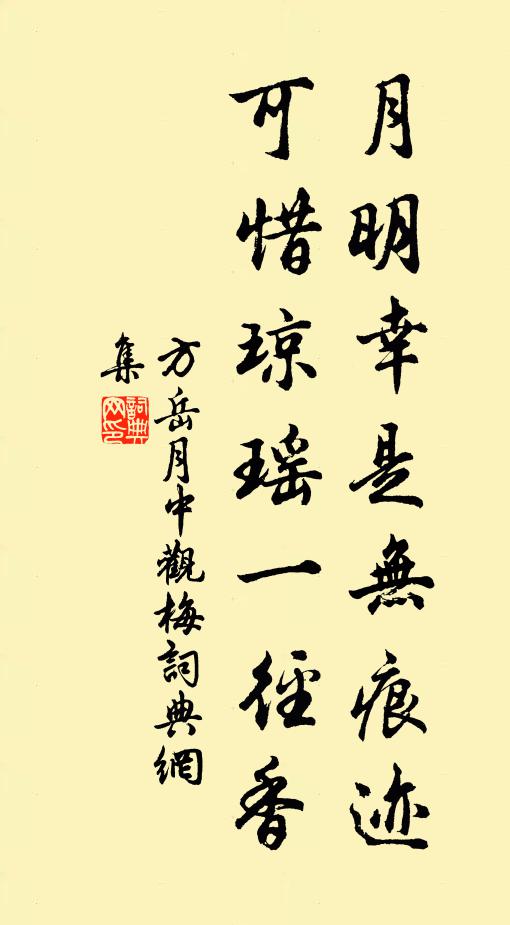 月明幸是無痕迹
可惜琼瑶一徑香
方岳月中觀梅詞典網
集
詞典網印